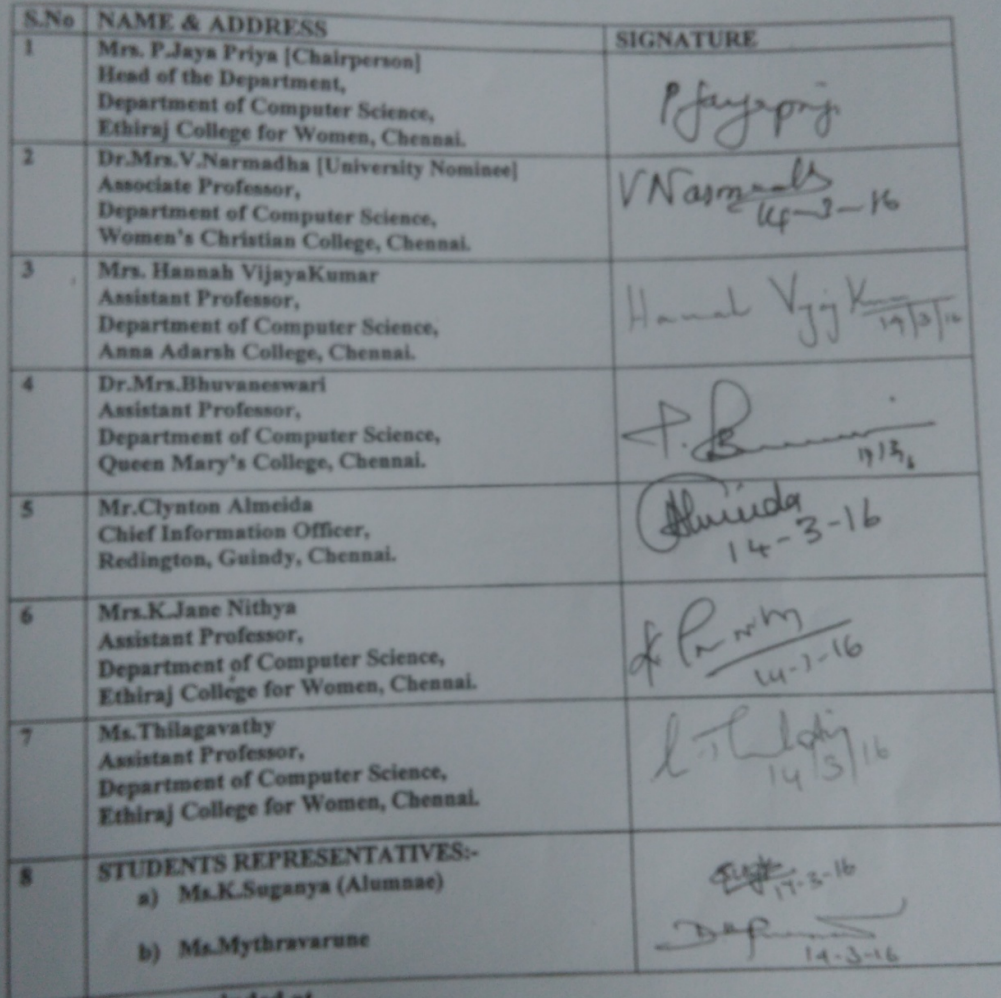 S.No NAME & ADDRESS SIGNATURE
1 Mrs. P.Jaya Priya [Chairperson]
Head of the Department,
Department of Computer Science,
Ethiraj College for Women, Chennai.
P Jayapriya
2 Dr.Mrs.V.Narmadha [University Nominee]
Associate Professor,
Department of Computer Science,
Women's Christian College, Chennai.
V Narmada
14-3-16
3 Mrs. Hannah VijayaKumar
Assistant Professor,
Department of Computer Science,
Anna Adarsh College, Chennai.
14/3/16
4 Dr.Mrs.Bhuvaneswari
Assistant Professor,
Department of Computer Science,
Queen Mary's College, Chennai.
5 Mr.Clynton Almeida
Chief Information Officer,
Redington, Guindy, Chennai.
Almeida
14-3-16
6 Mrs.K.Jane Nithya
Assistant Professor,
Department of Computer Science,
Ethiraj College for Women, Chennai.
14-3-16
7 Ms.Thilagavathy
Assistant Professor,
Department of Computer Science,
Ethiraj College for Women, Chennai.
14/3/16
8 STUDENTS REPRESENTATIVES:-
a) Ms.K.Suganya (Alumnae)
14-3-16
b) Ms.Mythravarune
14-3-16